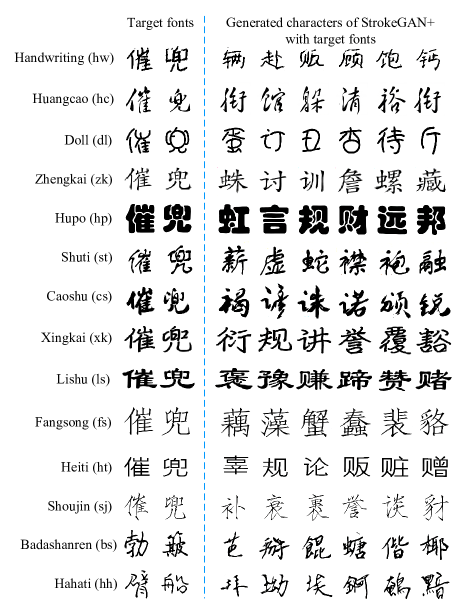 Target fonts Generated characters of StrokeGAN+
with target fonts
Handwriting (hw) 催 兜 辆 赴 贩 顾 饱 钙
Huangcao (hc) 催 兜 衔 馆 躲 清 裕 衔
Doll (dl) 催 兜 蛋 订 丑 杏 待 斤
Zhengkai (zk) 催 兜 蛛 讨 训 詹 螺 藏
Hupo (hp) 催 兜 虹 言 规 财 远 邦
Shuti (st) 催 兜 薪 虚 蛇 襟 袍 融
Caoshu (cs) 催 兜 褐 谚 诛 诺 颁 锐
Xingkai (xk) 催 兜 衍 规 讲 誉 覆 豁
Lishu (ls) 催 兜 褒 豫 赚 蹄 赞 赌
Fangsong (fs) 催 兜 藕 藻 蟹 蠢 裴 貉
Heiti (ht) 催 兜 辜 规 论 贩 赃 赠
Shoujin (sj) 催 兜 补 衰 裹 誉 谈 豺
Badashanren (bs) 勃 芭 掰 馄 螗 偕 椰
Hahati (hh) 臂 船 拗 埃 锕 鹌 黯